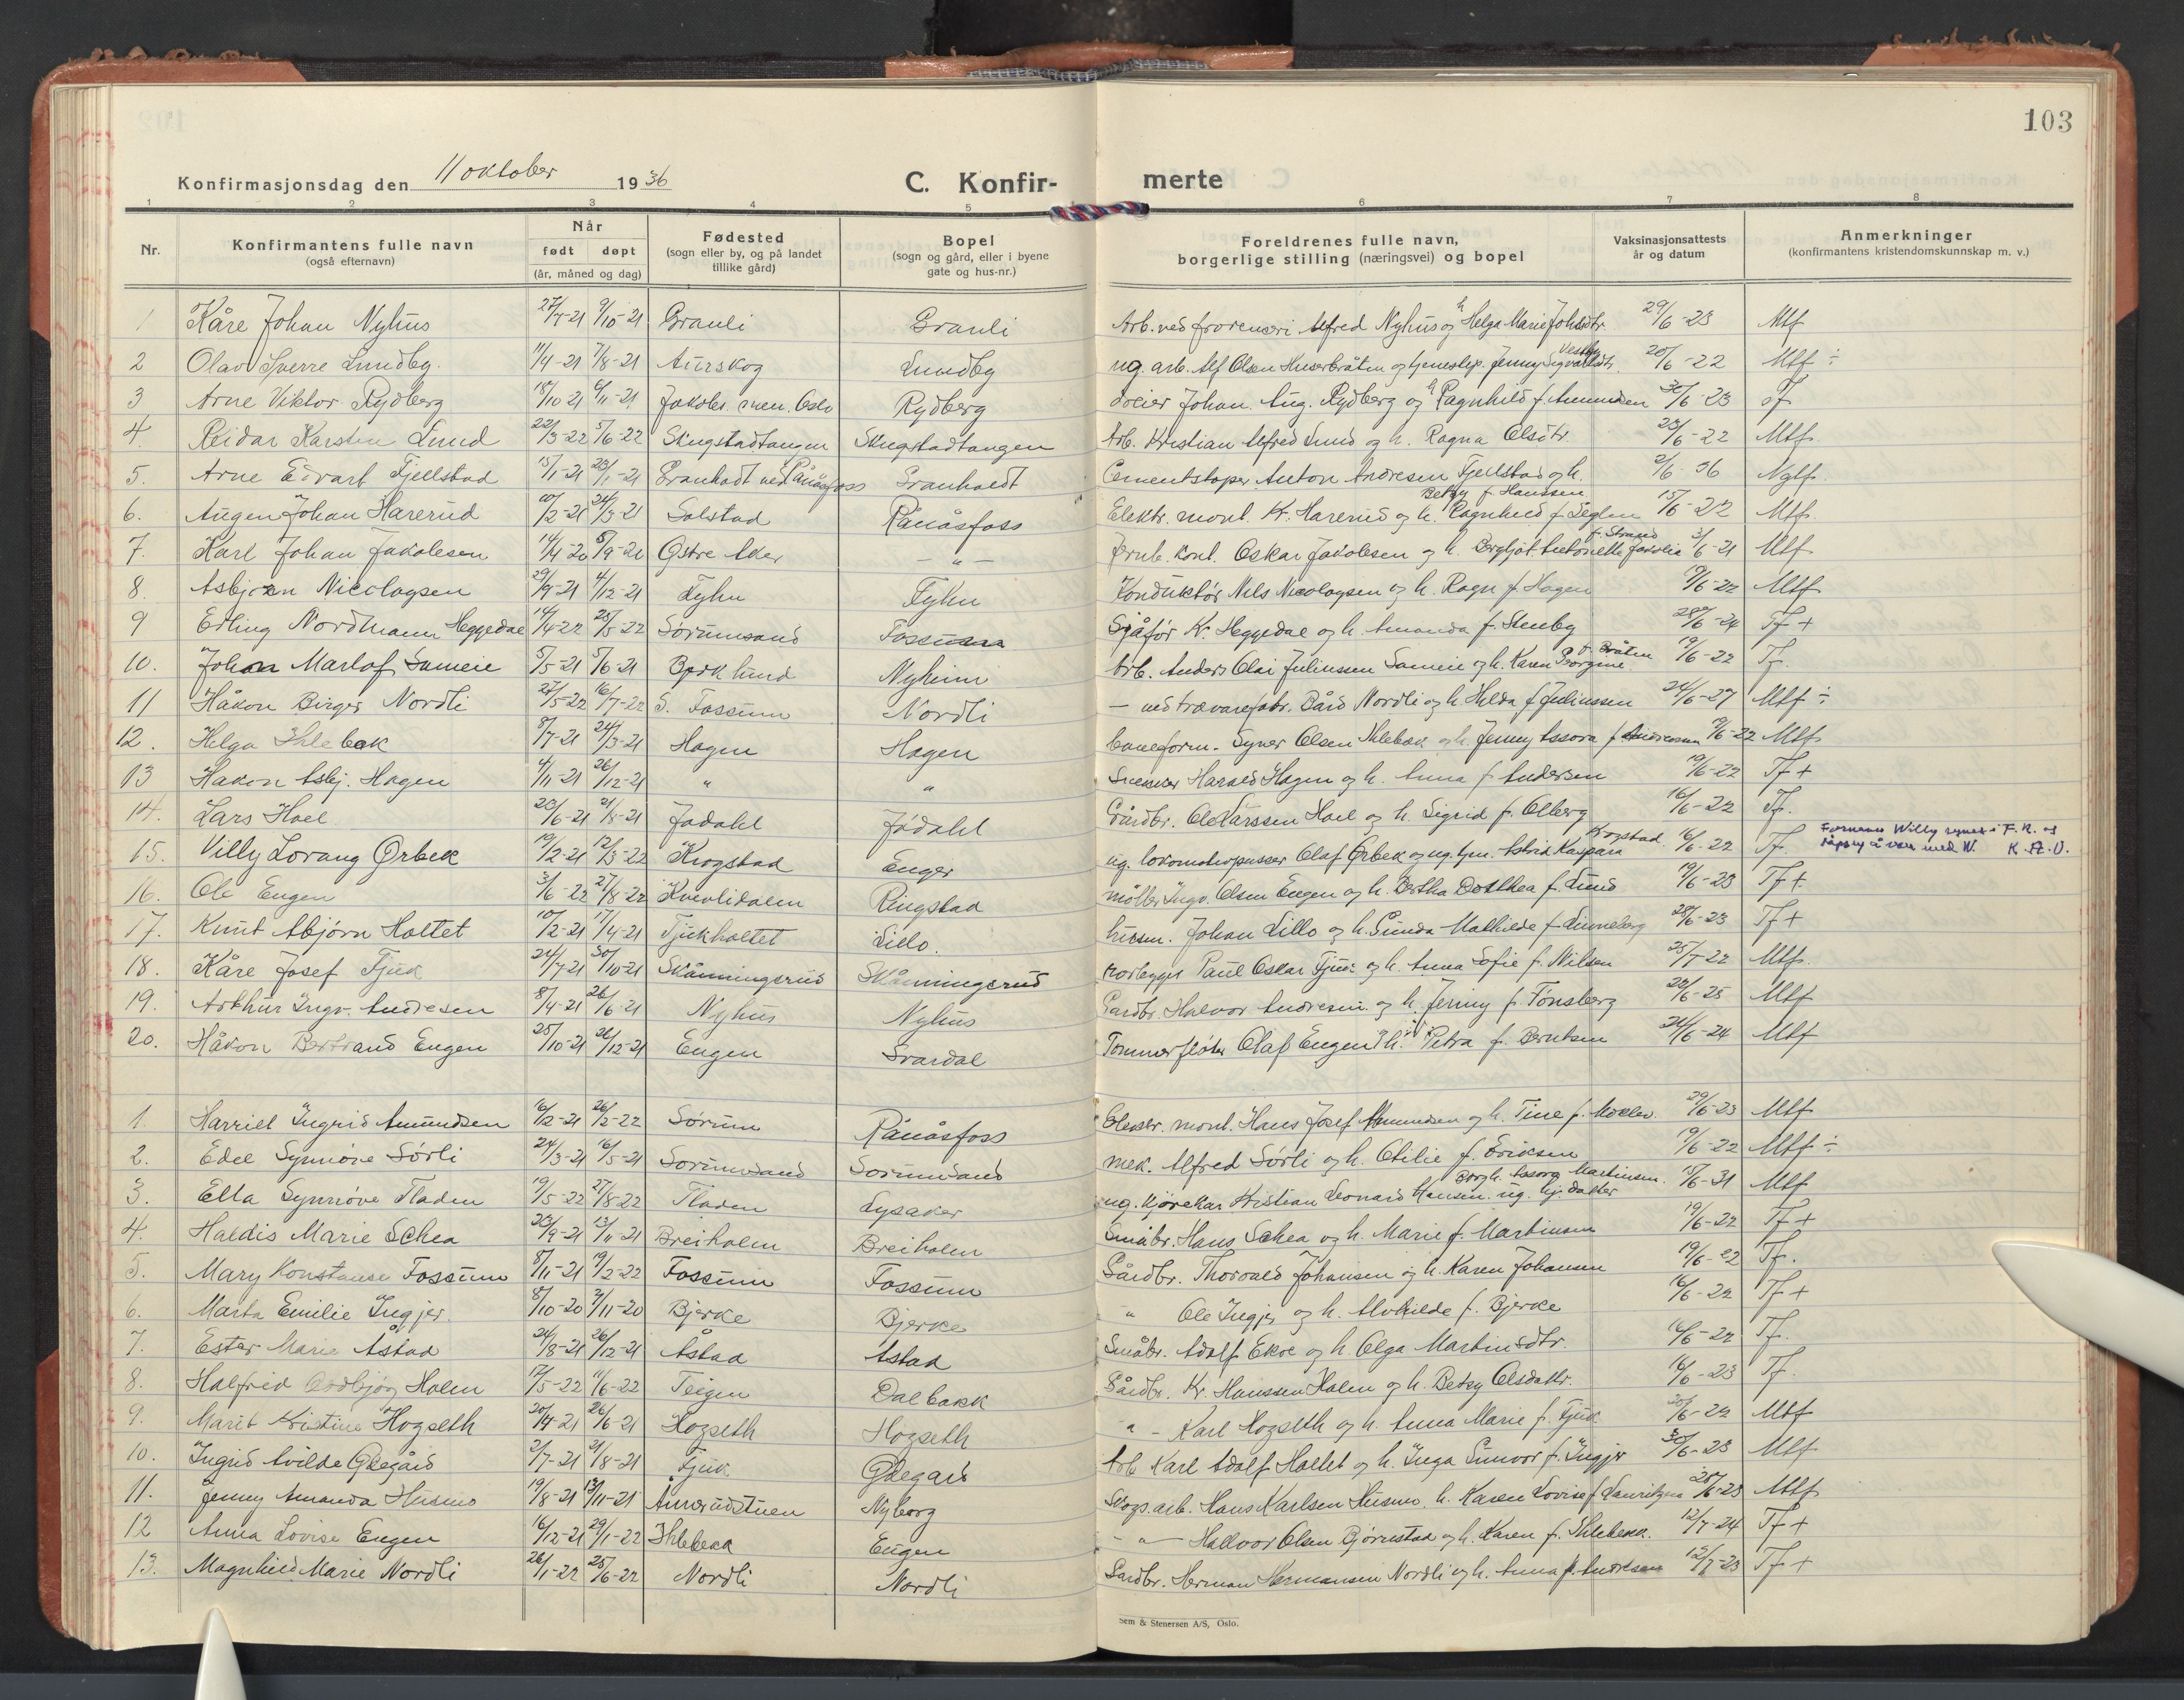 103
Konfirmasjonsdag den 11 oktober 1936 C. Konfir- merte
1 2 3 4 5 6 7 8
Nr. Konfirmantens fulle navn (også efternavn) Når født døpt (år, måned og dag) Fødested (sogn eller by, og på landet tillike gård) Bopel (sogn og gård, eller i byene gate og hus-nr.) Foreldrenes fulle navn, borgerlige stilling (næringsvei) og bopel Vaksinasjonsattests år og datum Anmerkninger (konfirmantens kristendomskunnskap m. v.)
1 Kåre Johan Nyhus 27/7-21 9/10-21 Granli Granli Arb. ved Alfred Nyhus og h Helga Marie 29/6-23 Mtf
2 Olav Sverre Lundby. 11/4-21 7/8-21 Aurskog Lundby ug. arb. Alf Olsen Huserbråten og Jenny Vestby 20/6-22 Mtf ÷
3 Arne Viktor Rydberg 18/10 21 6/11-21 Jakobs men. Oslo Rydberg Johan. Aug. Rydberg og h Ragnhild f. Amundsen 30/6-23 Tf
4. Reidar Karsten Lund 22/3-22 5/6-22 Skugstadtangen Skugstadtangen Arb. Kristian Alfred Lund og h. Ragna Olsdtr. 23/6-22 Mtf.
5. Arne Edvart Fjellstad 15/1-21 23/1-21 Granholt ved Rånåsfoss Granholdt Cementstøper Anton Andresen Fjellstad og h. Betsy f. Hanssen 2/6 36 Ngtf.
6. Augen Johan Harerud 10/2-21 24/3-21 Solstad Rånåsfoss Elektr. mont. Kr. Harerud og h. Ragnhild f. Seglem 15/6-22 Mtf.
7. Karl Johan Jakobsen 14/4-20 5/9-20 Østre Aker - " - Jernb. kont. Oskar Jakobsen og h. Bergljot f. Strand 3/6-21 Mtf
8. Asbjørn Nicolaysen 29/9-21 4/12-21 Fyhn Fyhn Konduktør Nils Nicolaysen og h. Ragn f. Hagen 19/6-22 Mtf
9 Erling Nordmann Heggedal 14/4-22 25/5-22 Sørumsand Fossum Sjåfør Kr. Heggedal og h. Amanda f. Stenby 28/6-24 Tf +
10. Johan Marlof Sameie 5/5-21 5/6-21 Bjørklund Nyheim Arb. Anders Olai Juliussen Sameie og h. Karen Georgine f. Bråten 19/6-22 Tf.
11 Håkon Birger Nordli 27/5-22 16/7-22 S. Fossum Nordli - ved trævarefabr. Bård Nordli og h. Hilda f. Juliussen 24/6-27 Mtf ÷
12. Helga Ihlebæk 8/7-21 24/3-21 Hagen Hagen baneform. Syver Olsen Ihlebæk og h. Jenny Assora f. Andresen 19/6-22 Mtf
13 Håkon Asbj. Hagen 4/11 21 26/12-21 " " Snekker Harald Hagen og h. Anna f. Andersen 19/6-22 Tf +
14. Lars Hoel 20/6-21 21/8-21 Jødahl Jødahl Gårdbr. Ole Larssen Hoel og h. Sigrid f. Olberg 16/6-22 Tf.
15. Villy Lorang Ørbek 19/2-21 12/3-22 Krogstad Enger ug. lokomotivpusser Olaf Ørbek og ug. tjen. Astrid Kaspara Krogstad 16/6-22 Tf. Fornavn Willy synes i F. R. og K. A. V.
16. Ole Eugen 3/6-22 27/8-22 Kvevlidalen Ringstad møller Ingv. Olsen Eugen og h. Bertha Dorthea f. Lund 19/6-23 Tf +
17. Knut Abjørn Holtet 10/2-21 17/4-21 Tjukholtet Lillo. husm. Johan Lillo og h. Gunda Mathilde f. Linneberg 28/6-23 Tf +
18. Kåre Josef Tjuk 24/7-21 30/10-21 Skånningsrud Skånningsrud rørlegger Paul Oskar Tjuk og h. Anna Sofie f. Nilsen 25/7-22 Mtf.
19. Arthur Ingv. Andresen 8/4-21 26/6-21 Nyhus Nyhus Gardbr. Halvor Andresen og h. Jenny f. Tønsberg 28/6-25 Mtf
20. Håkon Bertrand Eugen 25/10-21 26/12-21 Eugen Svardal Tømmerfløter Olaf Eugen og h. Petra f. Berntsen 24/6-24 Mtf
1. Harriet Ingrid Amundsen 16/2-21 26/2-22 Sørum Rånåsfoss Elektr. mont. Hans Josef Amundsen og h. Tine f. Møller. 29/6-23 Mtf
2. Edel Synnøve Sørli 24/3-21 16/5-21 Sørumsand Sørumsand mek. Alfred Sørli og h. Otilie f. Eriksen 19/6-22 Mtf ÷
3. Ella Synnøve Fladen 19/5-22 27/8-22 Fladen Lysaker ug. kjørekar Kristian Leonard Hansen. ug. hj. datter Borgh. Aasora Martinsen. 15/6-31 Mtf
4. Haldis Marie Schea 23/9-21 13/11-21 Breiholen Breiholen Småbr. Hans Schea og h. Marie f. Martinsen 19/6-22 Tf +
5. Mary Konstanse Fossum 8/11-21 19/2-22 Fossum Fossum Gårdbr. Thorvald Johansen og h. Karen Johansen 19/6-22 Tf.
6. Marta Emilie Ingjer. 8/10-20 7/11-20 Bjerke Bjerke " Ole Ingjer og h. Alvhilde f. Bjerke 16/6-22 Tf +
7. Ester Marie Åstad 24/8-21 26/12-21 Åstad Åstad Småbr. Adolf Ekre og h. Olga Martinsdtr. 16/6-22 Tf.
8. Halfrid Oddbjørg Holen 17/5-22 11/6-22 Teigen Dalbakk Gårdbr. Kr. Hanssen Holen og h. Betsy Olsdattr. 16/6-23 Tf.
9. Marit Kristine Hogseth 20/4-21 26/6-21 Hogseth Hogseth " - Karl Hogseth og h. Anna Marie f. Tjuk 20/6-22 Mtf
10. Ingrid Alvilde Ødegård 2/7-21 21/8-21 Tjuk Ødegård Arb. Karl Adolf Holtet og h. Inga Gunvor f. Ingjer 30/6-23 Mtf
11. Jenny Amanda Husmo 19/8-21 13/11-21 Amrudstuen Nyborg Skogs.arb. Hans Karlsen Husmo. h. Karen Lovise f. Lauritzen 28/6-23 Mtf
12 Anna Lovise Eugen 16/12-21 29/1-22 Ihlebekk Eugen - " - Hallvor Olsen Bjørnstad og h. Karen f. Ihlebekk. 12/7-24 Tf +
13. Magnhild Marie Nordli 26/1-22 25/6-22 Nordli Nordli Gardbr. Herman Hermansen Nordli og h. Anna f. Andresen 12/7-23 Tf +
Sem & Stenersen A/S, Oslo.